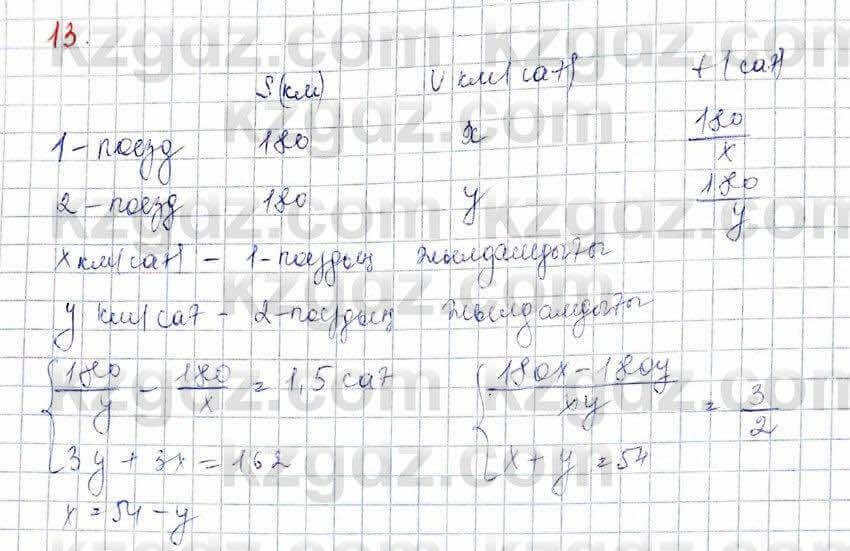 13.
S(км) V км/сағ t(сағ)
1-поезд 180 x 180/x
2-поезд 180 y 180/y
x км/сағ - 1-поездың жылдамдығы
y км/сағ - 2-поездың жылдамдығы
{180/y - 180/x = 1,5 сағ {(180x-180y)/xy = 3/2
3y + 3x = 162 x + y = 54
x = 54 - y
kzgdz.com